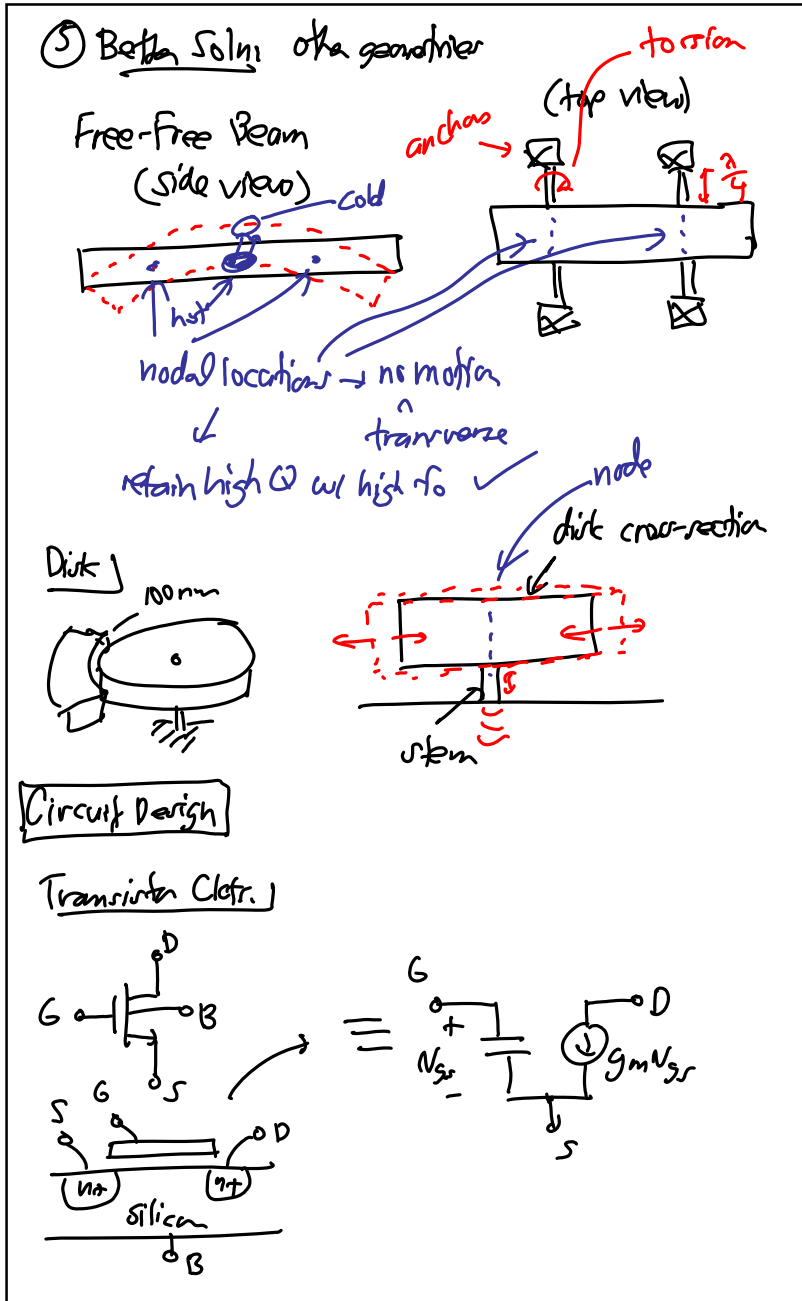 ⑤ Better Soln: other geometries
torsion
(top view)
anchors
Free-Free Beam
(side view)
cold
λ/4
hot
nodal locations → no motion
^
transverse
retain high Q w/ high fo ✓
node
disk cross-section
Disk
100nm
stem
Circuit Design
Transistor Ckts.
D
G
B
S
G
S
D
n+
n+
silicon
B
≡
G
+
Vgs
-
D
gmVgs
S